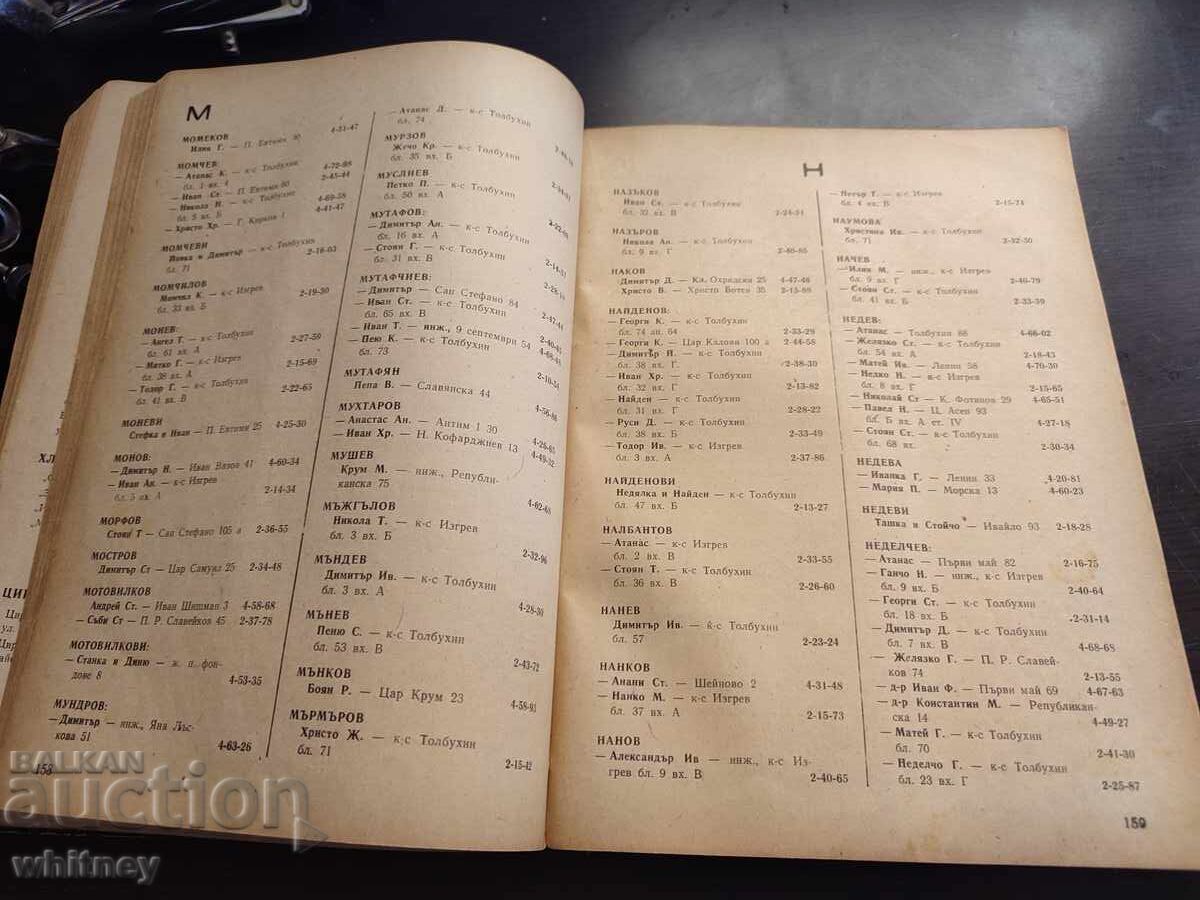 М
МОМЕКОВ
Илия Г. — П. Евтими 30 4-31-47
МОМЧЕВ:
— Атанас К. — к-с Толбухин
бл. 1 вх. 4 4-72-98
— Иван Ст. — П. Евтими 60 2-45-44
— Никола Н. — к-с Толбухин
бл. 5 вх. Б 4-69-58
— Христо Хр. — Г. Кирков 1 4-41-47
МОМЧЕВИ
Йовка и Димитър — к-с Толбухин
бл. 71 2-18-03
МОМЧИЛОВ
Момчил К. — к-с Изгрев
бл. 33 вх. Б 2-19-30
МОНЕВ:
— Ангел Т. — к-с Толбухин
бл. 61 вх. А 2-27-59
— Митко Г. — к-с Изгрев
бл. 38 вх. А 2-15-69
— Тодор Г. — к-с Толбухин
бл. 41 вх. В 2-22-65
МОНЕВИ
Стефка и Иван — П. Евтими 25 4-25-30
МОНОВ:
— Димитър Н. — Иван Вазов 41 4-60-34
— Иван Ан. — к-с Изгрев
бл. 5 вх. А 2-14-34
МОРФОВ
Стоян Т — Сан Стефано 105 а 2-36-55
МОСТРОВ
Димитър Ст — Цар Самуил 25 2-34-48
МОТОВИЛКОВ
Андрей Ст. — Иван Шишман 3 4-58-68
— Съби Ст — П. Р. Славейков 45 2-37-78
МОТОВИЛКОВИ:
— Станка и Диню — ж. п. фон-
дове 8 4-53-35
МУНДРОВ:
— Димитър — инж., Яна Лъс-
кова 51 4-63-26
158
— Атанас Д. — к-с Толбухин
бл. 74
МУРЗОВ
Жечо Кр. — к-с Толбухин
бл. 35 вх. Б
МУСЛИЕВ
Петко П. — к-с Толбухин
бл. 50 вх. А
МУТАФОВ:
— Димитър Ан. — к-с Толбухин
бл. 16 вх. А
— Стоян Г. — к-с Толбухин
бл. 31 вх. В
МУТАФЧИЕВ:
— Димитър — Сан Стефано 84
— Иван Ст. — к-с Толбухин
бл. 65 вх. В
— Иван Т. — инж., 9 септември 54
— Пею К. — к-с Толбухин
бл. 73
МУТАФЯН
Пепа В. — Славянска 44
МУХТАРОВ
— Анастас Ан. — Антим 1 30
— Иван Хр. — Н. Кофарджиев 13 4-49-32
МУШЕВ
Крум М. — инж., Републи-
канска 75 4-62-68
МЪЖГЪЛОВ
Никола Т. — к-с Изгрев
бл. 3 вх. Б 2-32-96
МЪНДЕВ
Димитър Ив. — к-с Толбухин
бл. 3 вх. А 4-28-30
МЪНЕВ
Пеню С. — к-с Толбухин
бл. 53 вх. В 2-43-72
МЪНКОВ
Боян Р. — Цар Крум 23
МЪРМЪРОВ
Христо Ж. — к-с Толбухин
бл. 71 2-15-42
Н
НАЗЪКОВ
Иван Ст. — к-с Толбухин
бл. 32 вх. В 2-24-51
НАЗЪРОВ
Никола Ан. — к-с Толбухин
бл. 9 вх. Г 2-40-85
НАКОВ
Димитър Д. — Кл. Охридски 25 4-47-46
Христо В. — Христо Ботев 35 2-15-88
НАЙДЕНОВ:
— Георги К. — к-с Толбухин
бл. 74 ап. 64 2-33-29
— Георги К. — Цар Калоян 100 а 2-44-58
— Димитър Й. — к-с Толбухин
бл. 38 вх. Г. 2-38-30
— Иван Хр. — к-с Толбухин
бл. 32 вх. Г 2-13-82
— Найден — к-с Толбухин
бл. 31 вх. Г 2-28-22
— Руси Д. — к-с Толбухин
бл. 38 вх. Б 2-33-49
— Тодор Ив. — к-с Изгрев
бл. 3 вх. А 2-37-86
НАЙДЕНОВИ
Недялка и Найден — к-с Толбухин
бл. 47 вх. Б 2-13-27
НАЛБАНТОВ
— Атанас — к-с Изгрев
бл. 2 вх. В 2-33-55
— Стоян Т. — к-с Толбухин
бл. 36 вх. В 2-26-60
НАНЕВ
Димитър Ив. — к-с Толбухин
бл. 57 2-23-24
НАНКОВ
— Анани Ст. — Шейново 2 4-31-48
— Нанко М. — к-с Изгрев
бл. 37 вх. А 2-15-73
НАНОВ
— Александър Ив — инж., к-с Из-
грев бл. 9 вх. В 2-40-65
— Петър Т. — к-с Изгрев
бл. 4 вх. В 2-15-24
НАУМОВА
Христина Ив. — к-с Толбухин
бл. 71 2-32-50
НАЧЕВ
— Илия М. — инж., к-с Изгрев
бл. 9 вх. Г 2-40-79
— Стоян Ст. — к-с Толбухин
бл. 41 вх. Б 2-33-59
НЕДЕВ:
— Атанас — Толбухин 88 4-66-02
— Желязко Ст. — к-с Толбухин
бл. 54 вх. А 2-18-43
— Матей Ив. — Ленин 58 4-70-30
— Недко Н. — к-с Изгрев
бл. 8 вх. Г 2-15-65
— Николай Ст — К. Фотинов 29 4-65-51
— Павел Н. — Ц. Асен 93
бл. Б вх. А ет. IV 4-27-18
— Стоян Ст. — к-с Толбухин
бл. 68 вх. 2-30-34
НЕДЕВА
— Иванка Г. — Ленин 33 4-20-81
— Мария П. — Морска 13 4-60-23
НЕДЕВИ
Ташка и Стойчо — Ивайло 93 2-18-28
НЕДЕЛЧЕВ:
— Атанас — Първи май 82 2-16-75
— Ганчо Н. — инж., к-с Изгрев
бл. 9 вх. Б 2-40-64
— Георги Ст. — к-с Толбухин
бл. 18 вх. Б 2-31-14
— Димитър Д. — к-с Толбухин
бл. 7 вх. Б 4-68-68
— Желязко Г. — П. Р. Славей-
ков 74 2-13-55
— д-р Иван Ф. — Първи май 69 4-67-63
— д-р Константин М. — Републикан-
ска 14 4-49-27
— Матей Г. — к-с Толбухин
бл. 70 2-41-30
— Неделчо Г. — к-с Толбухин
бл. 23 вх. Г 2-25-87
159
BALKAN
auction
whitney